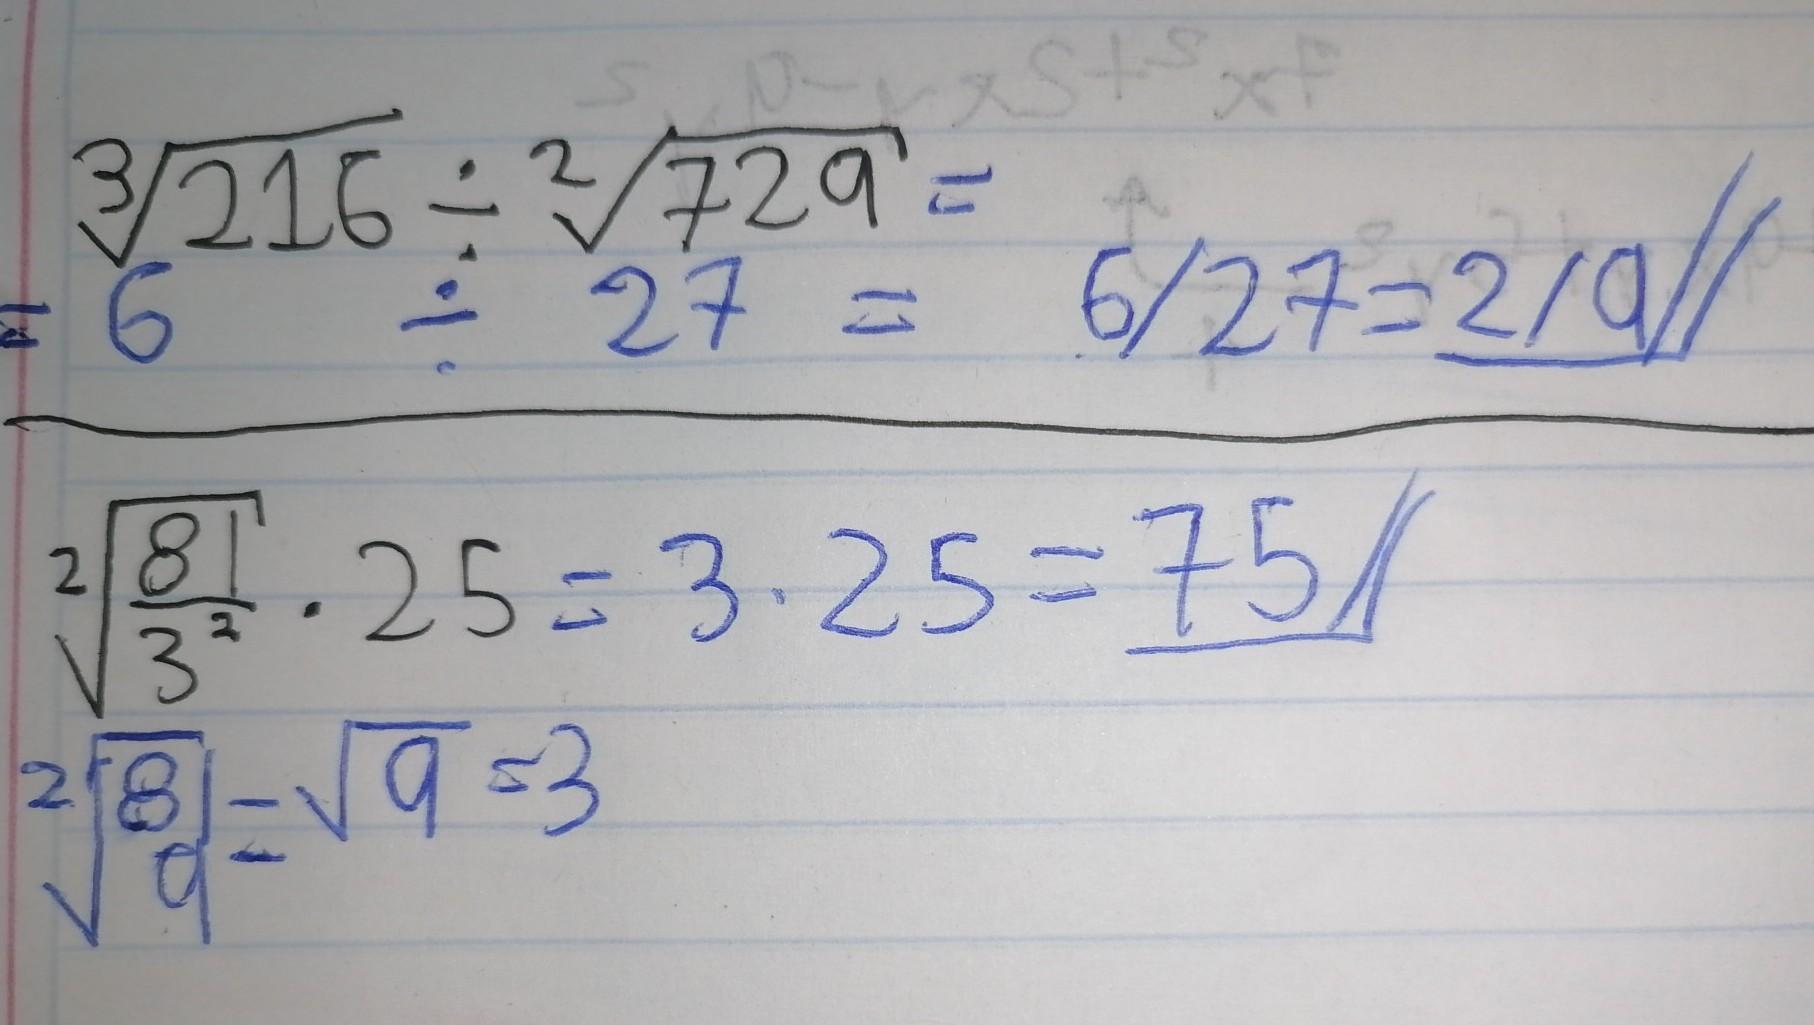 ³√216 ÷ ²√729 =
= 6 ÷ 27 = 6/27 = 2/9
²√(81/3²) · 25 = 3 · 25 = 75
²√(81/9) = √9 = 3